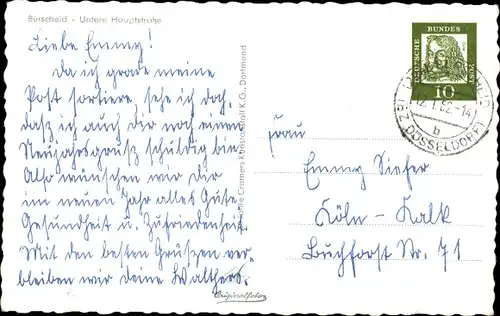 Burscheid - Untere Hauptstraße
Liebe Emmy!
Da ich grade meine
Post sortiere, sehe ich doch,
daß ich auch dir noch einen
Neujahrsgruß schuldig bin.
Also wünschen wir dir
im neuen Jahr alles Gute
Gesundheit u. Zufriedenheit.
Mit den besten Grüßen ver-
bleiben wir deine Walthers.
Cramers Kunstanstalt K.G., Dortmund
Originalfoto
DEUTSCHE BUNDESPOST
10
12.1.62.-14
b
(22 DÜSSELDORF)
Frau
Emmy Siefer
Köln-Kalk
Buchforst Str. 71